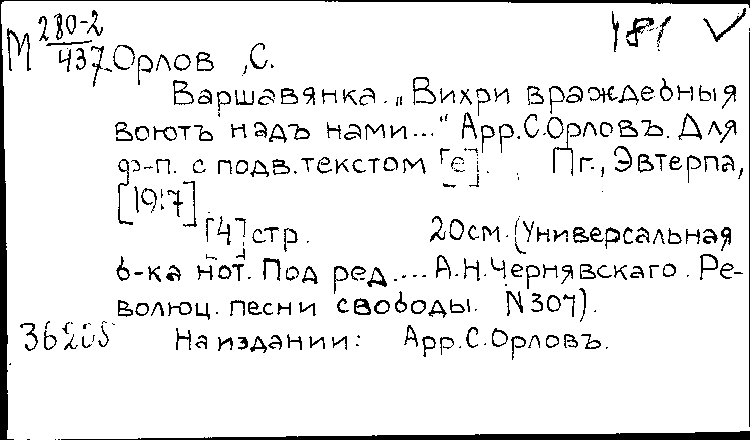 М 280-2/437 Орлов, С. 181 V
Варшавянка. „Вихри враждебныя
воютъ надъ нами..." Арр. С. Орловъ. Для
ф-п. с подв. текстом [e]. Пг., Эвтерпа,
[1917]
[4] стр. 20см. (Универсальная
б-ка нот. Под ред.... А.Н. Чернявскаго. Ре-
волюц. песни свободы. N307).
На издании: Арр. С. Орловъ.